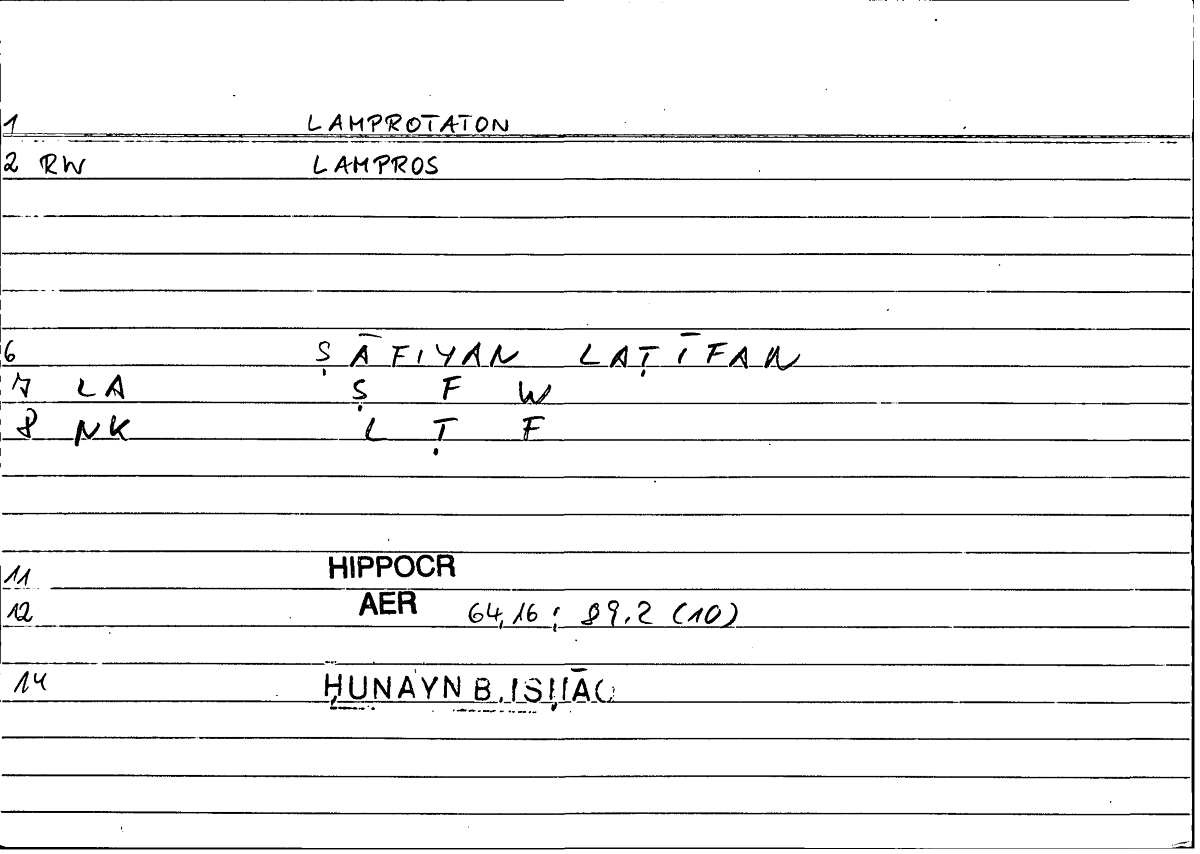 1 LAMPROTATON
2 RW LAMPROS
6 ṢĀFIYAN LAṬĪFAN
7 LA Ṣ F W
8 NK L Ṭ F
11 HIPPOCR
12 AER 64,16; 89.2 (10)
14 ḤUNAYN B. ISḤĀQ